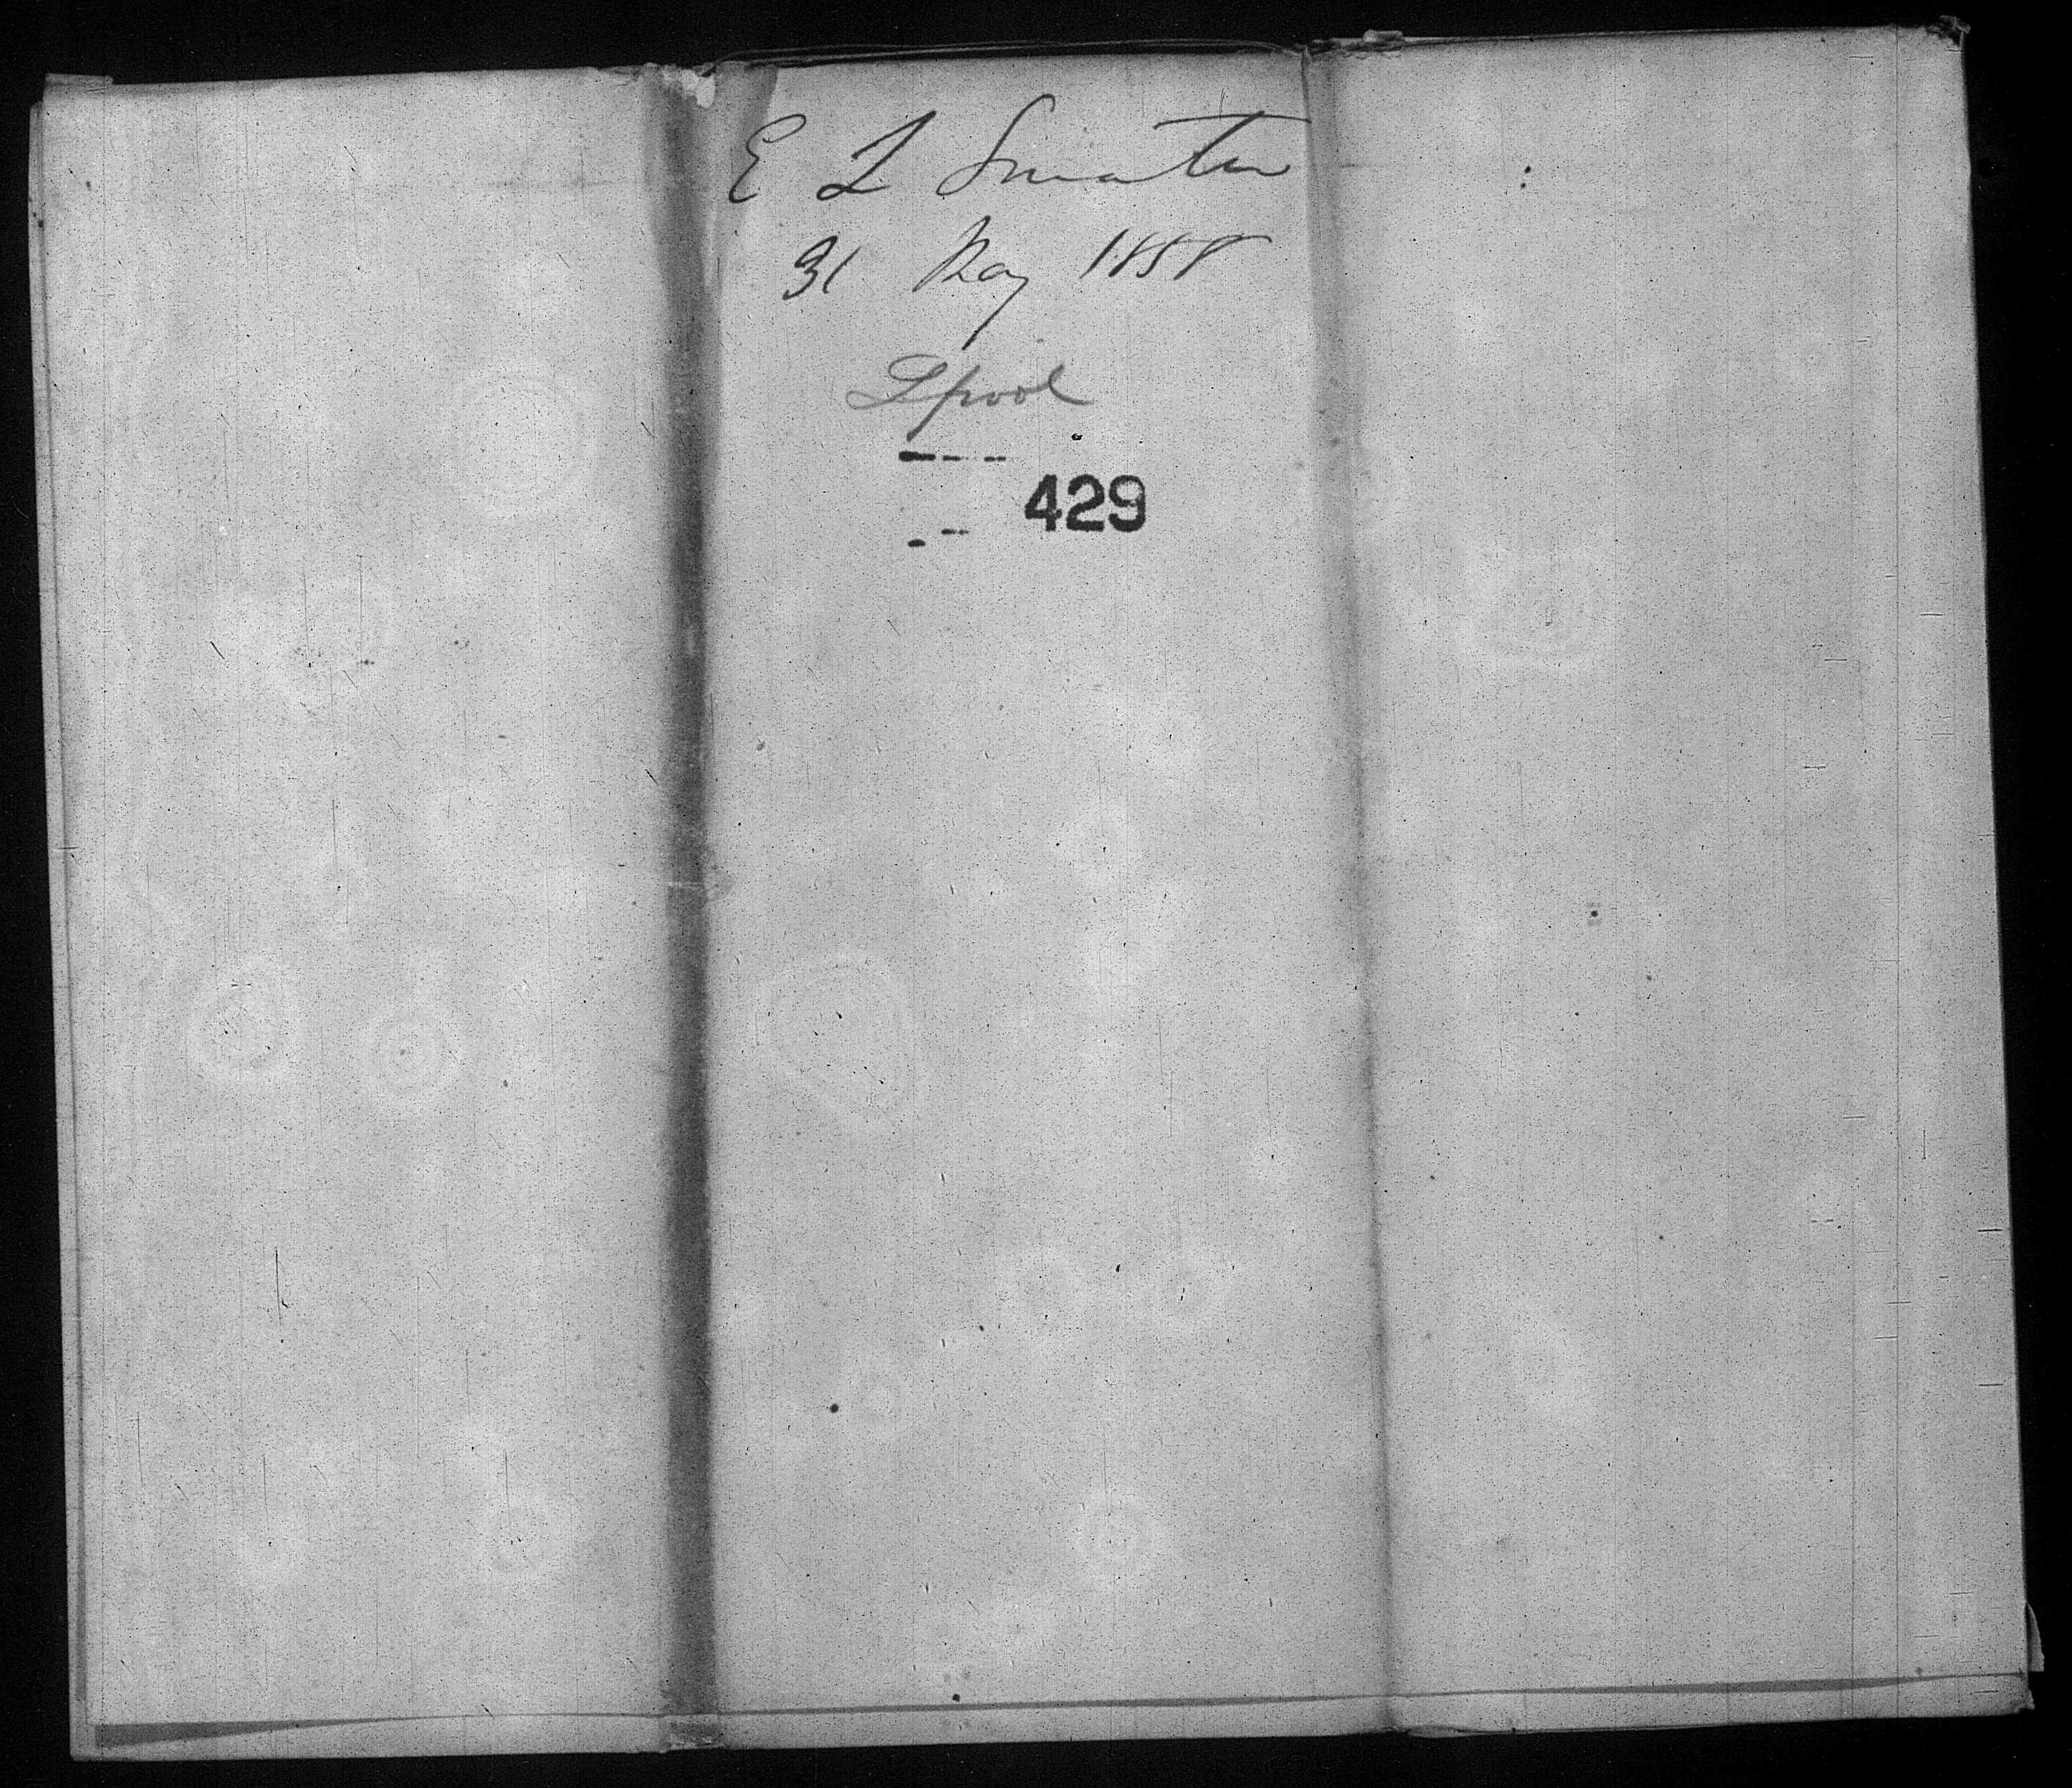 E L Sumter
31 May 1858
Lpool
429